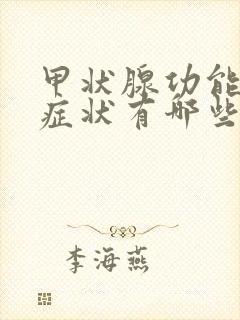 甲状腺功能
症状有哪些
李海燕